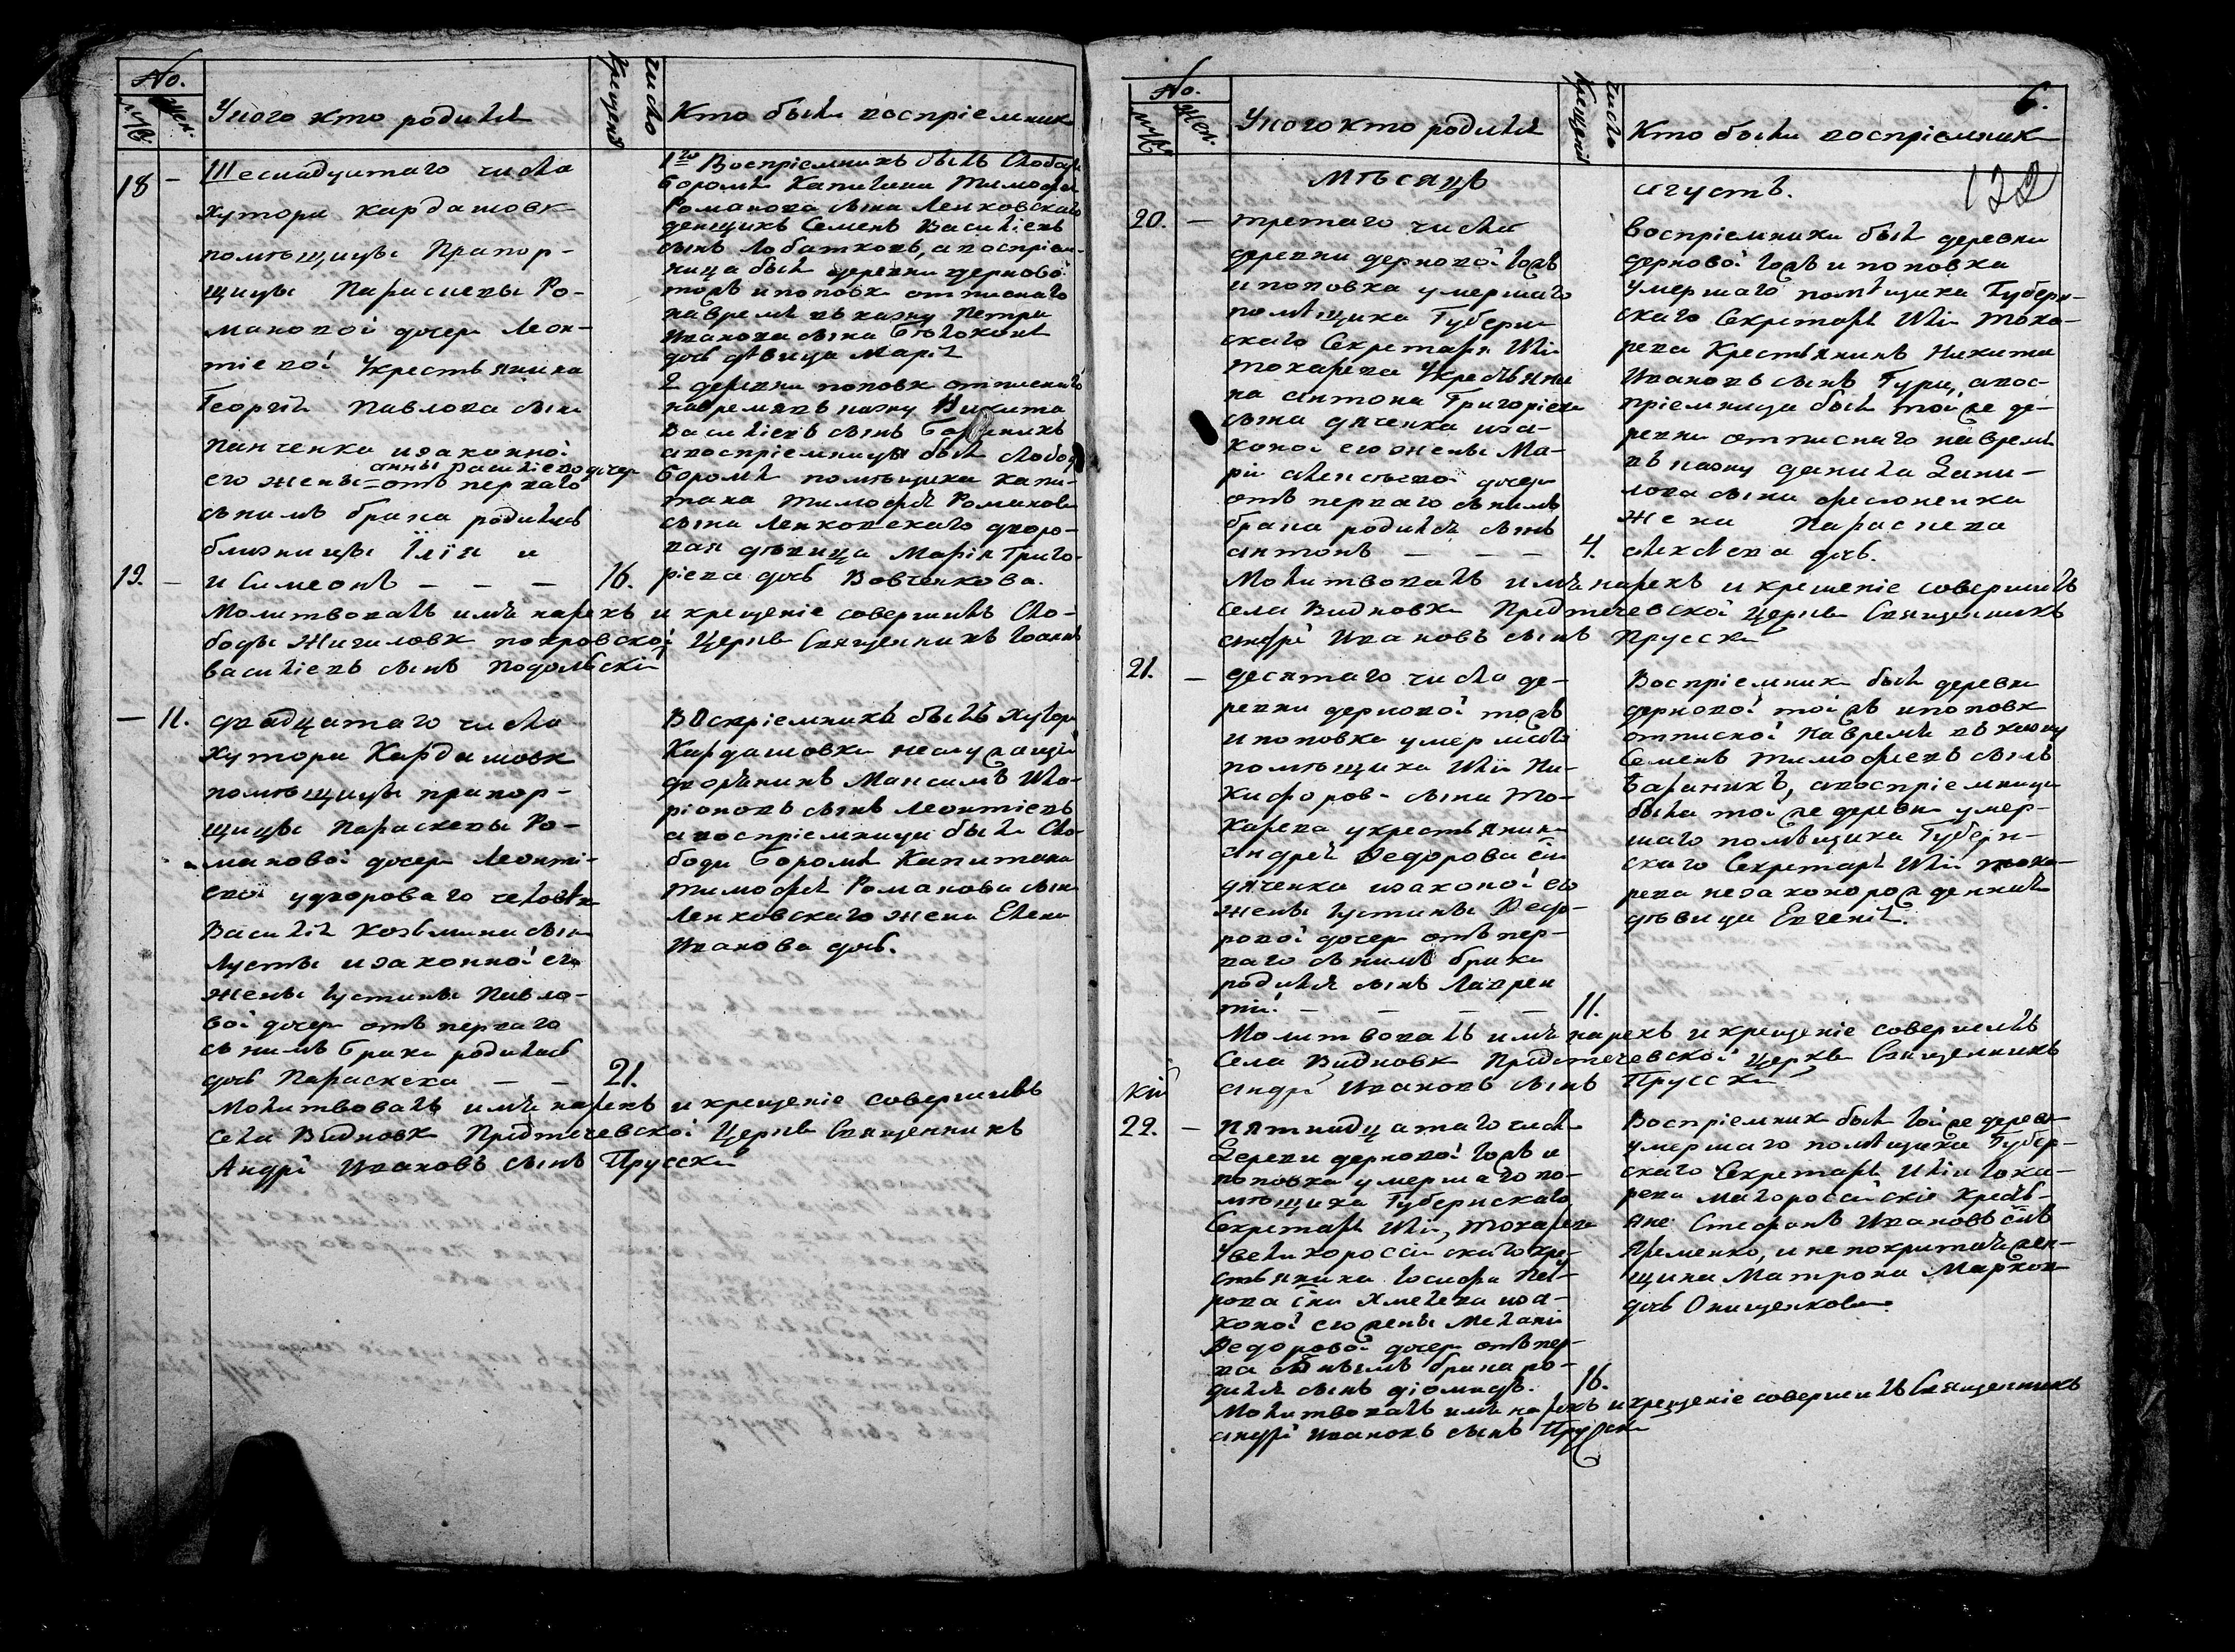 No.
муж. жен.
У кого кто родился
число крещения
Кто были восприемники
18 —
Шеснадцятаго числа
хутора Кардашовки
помѣщицы Прапор-
щицы Параскевы Ро-
мановой дочери Леон-
тіевой У крестьянина
Георгія Павлова сына
Панченка и законной
анны Василіевой дочери
его жены отъ перваго
съ нимъ брака родились
близницы Ілія и
19. —
и Симеонъ — — — 16.
1го Воспріемникъ былъ слободы
Боромли Капитана Тимофея
Романова сына Ленковскаго
денщикъ Семенъ Василіевъ
сынъ Лобатковъ, а воспріем-
ница была деревни дерновой
тожъ и поповки отписнаго
на время въ казну Петра
Иванова сына Бѣлоконя
дочь дѣвица Марія
2 деревни поповки отписнаго
на время въ казну Никита
Василіевъ сынъ
а воспріемница была слободы
Боромли помѣщика капи-
тана Тимофея Романова
сына Ленковского дворо-
вая дѣвица Марія Григо-
ріева дочь Вовченкова.
Молитвовалъ имя нарекъ и крещеніе совершилъ Сло-
боды Жигиловки покровской Церкви Священникъ Іоаннъ
Василіевъ сынъ Подольскій
— 11.
двадцатаго числа
хутора Кардашовки
помѣщицы прапор-
щицы Параскевы Ро-
мановой дочери Леонті-
евой у двороваго человѣка
Василія Козьмина сына
Лусты и законной его
жены Іустины Павло-
вой дочери отъ перваго
съ нимъ брака родилась
дочь Параскева — — 21.
Воспріемникъ былъ хутора
Кардашовки неслужащій
дворянинъ Максимъ Ила-
ріоновъ сынъ Леонтіевъ
а воспріемница была Сло-
боды Боромли Капитана
Тимофея Романова сына
Ленковскаго жена Елена
Иванова дочь.
Молитвовалъ имя нарекъ и крещеніе совершилъ
Села Видновки Предтечевской Церкви Священникъ
Андрей Ивановъ сынъ Прусскій
No.
муж. жен.
У кого кто родился
число крещения
Кто были воспріемники
6.
122
Мѣсяцъ августъ.
20. —
третаго числа
деревни дерновой тожъ
и поповка умершаго
помѣщика Губерн
скаго Секретаря Иліи
Токарева У крестьяни
на Антона Григоріева
сына дяченка и за-
коной его жены Ма-
ріи Алексѣевой дочери
отъ перваго съ нимъ
брака родился сынъ
Антонъ — — — 4.
Воспріемники были деревни
дерновой тожъ и поповка
Умершаго помѣщика Губерн-
скаго Секретаря Иліи Тока-
рева Крестьянинъ Никита
Ивановъ сынъ Гура, а вос-
пріемница была той же де-
ревни отписнаго на время
въ казну данила Дани-
лова сына Фесюненка
Жена Параскева
Алексѣева дочь.
Молитвовалъ имя нарекъ и крещеніе совершилъ
Села Видновки Предтечевской Церкви Священникъ
Андрей Ивановъ сынъ Прусскій
21. —
десятаго числа де-
ревни дерновой тожъ
и поповка умершаго
помѣщика Иліи Ни-
кифорова сына То-
карева у крестьянина
Андрея Федорова сына
дяченка и законой его
жены Іустины Федо-
ровой дочери отъ пер-
ваго съ нимъ брака
родился сынъ Лаврен
тій. — — — — 11.
Воспріемник былъ деревни
дерновой тожъ и поповки
отписной на время въ казну
Семенъ Тимофеевъ сынъ
Бараникъ, а воспріемница
была той же деревни умер-
шаго помѣщика Губерн-
скаго Секретаря Иліи Тока-
рева незаконорожденная
дѣвица Евгенія.
Молитвовалъ имя нарекъ и крещеніе совершилъ
Села Видновки Предтечевской Церкви Священникъ
Андрей Ивановъ сынъ Прусскій
22. —
Пятнадцатаго числа
Деревни дерновой тожъ и
поповка умершаго по-
мѣщика Губернскаго
Секретаря Иліи Токарева
У великороссійскаго кре-
стьянина Іосифа Пет-
рова сына Хмелева и за-
коной его жены Меланіи
Федоровой дочери отъ пер-
ва съ нимъ брака ро-
дился сынъ діомидъ. 16.
Воспріемник былъ той же деревни
умершаго помѣщика Губер-
скаго Секретаря Иліи Тока-
рева малороссійскіе Кресть-
яне Стефанъ Ивановъ сынъ
Яременко, и непокритая жен-
щина Матрона Маркова
дочь Онищенкова.
Молитвовалъ имя нарекъ и крещеніе совершилъ Священникъ
Андрей Ивановъ сынъ Прусскій